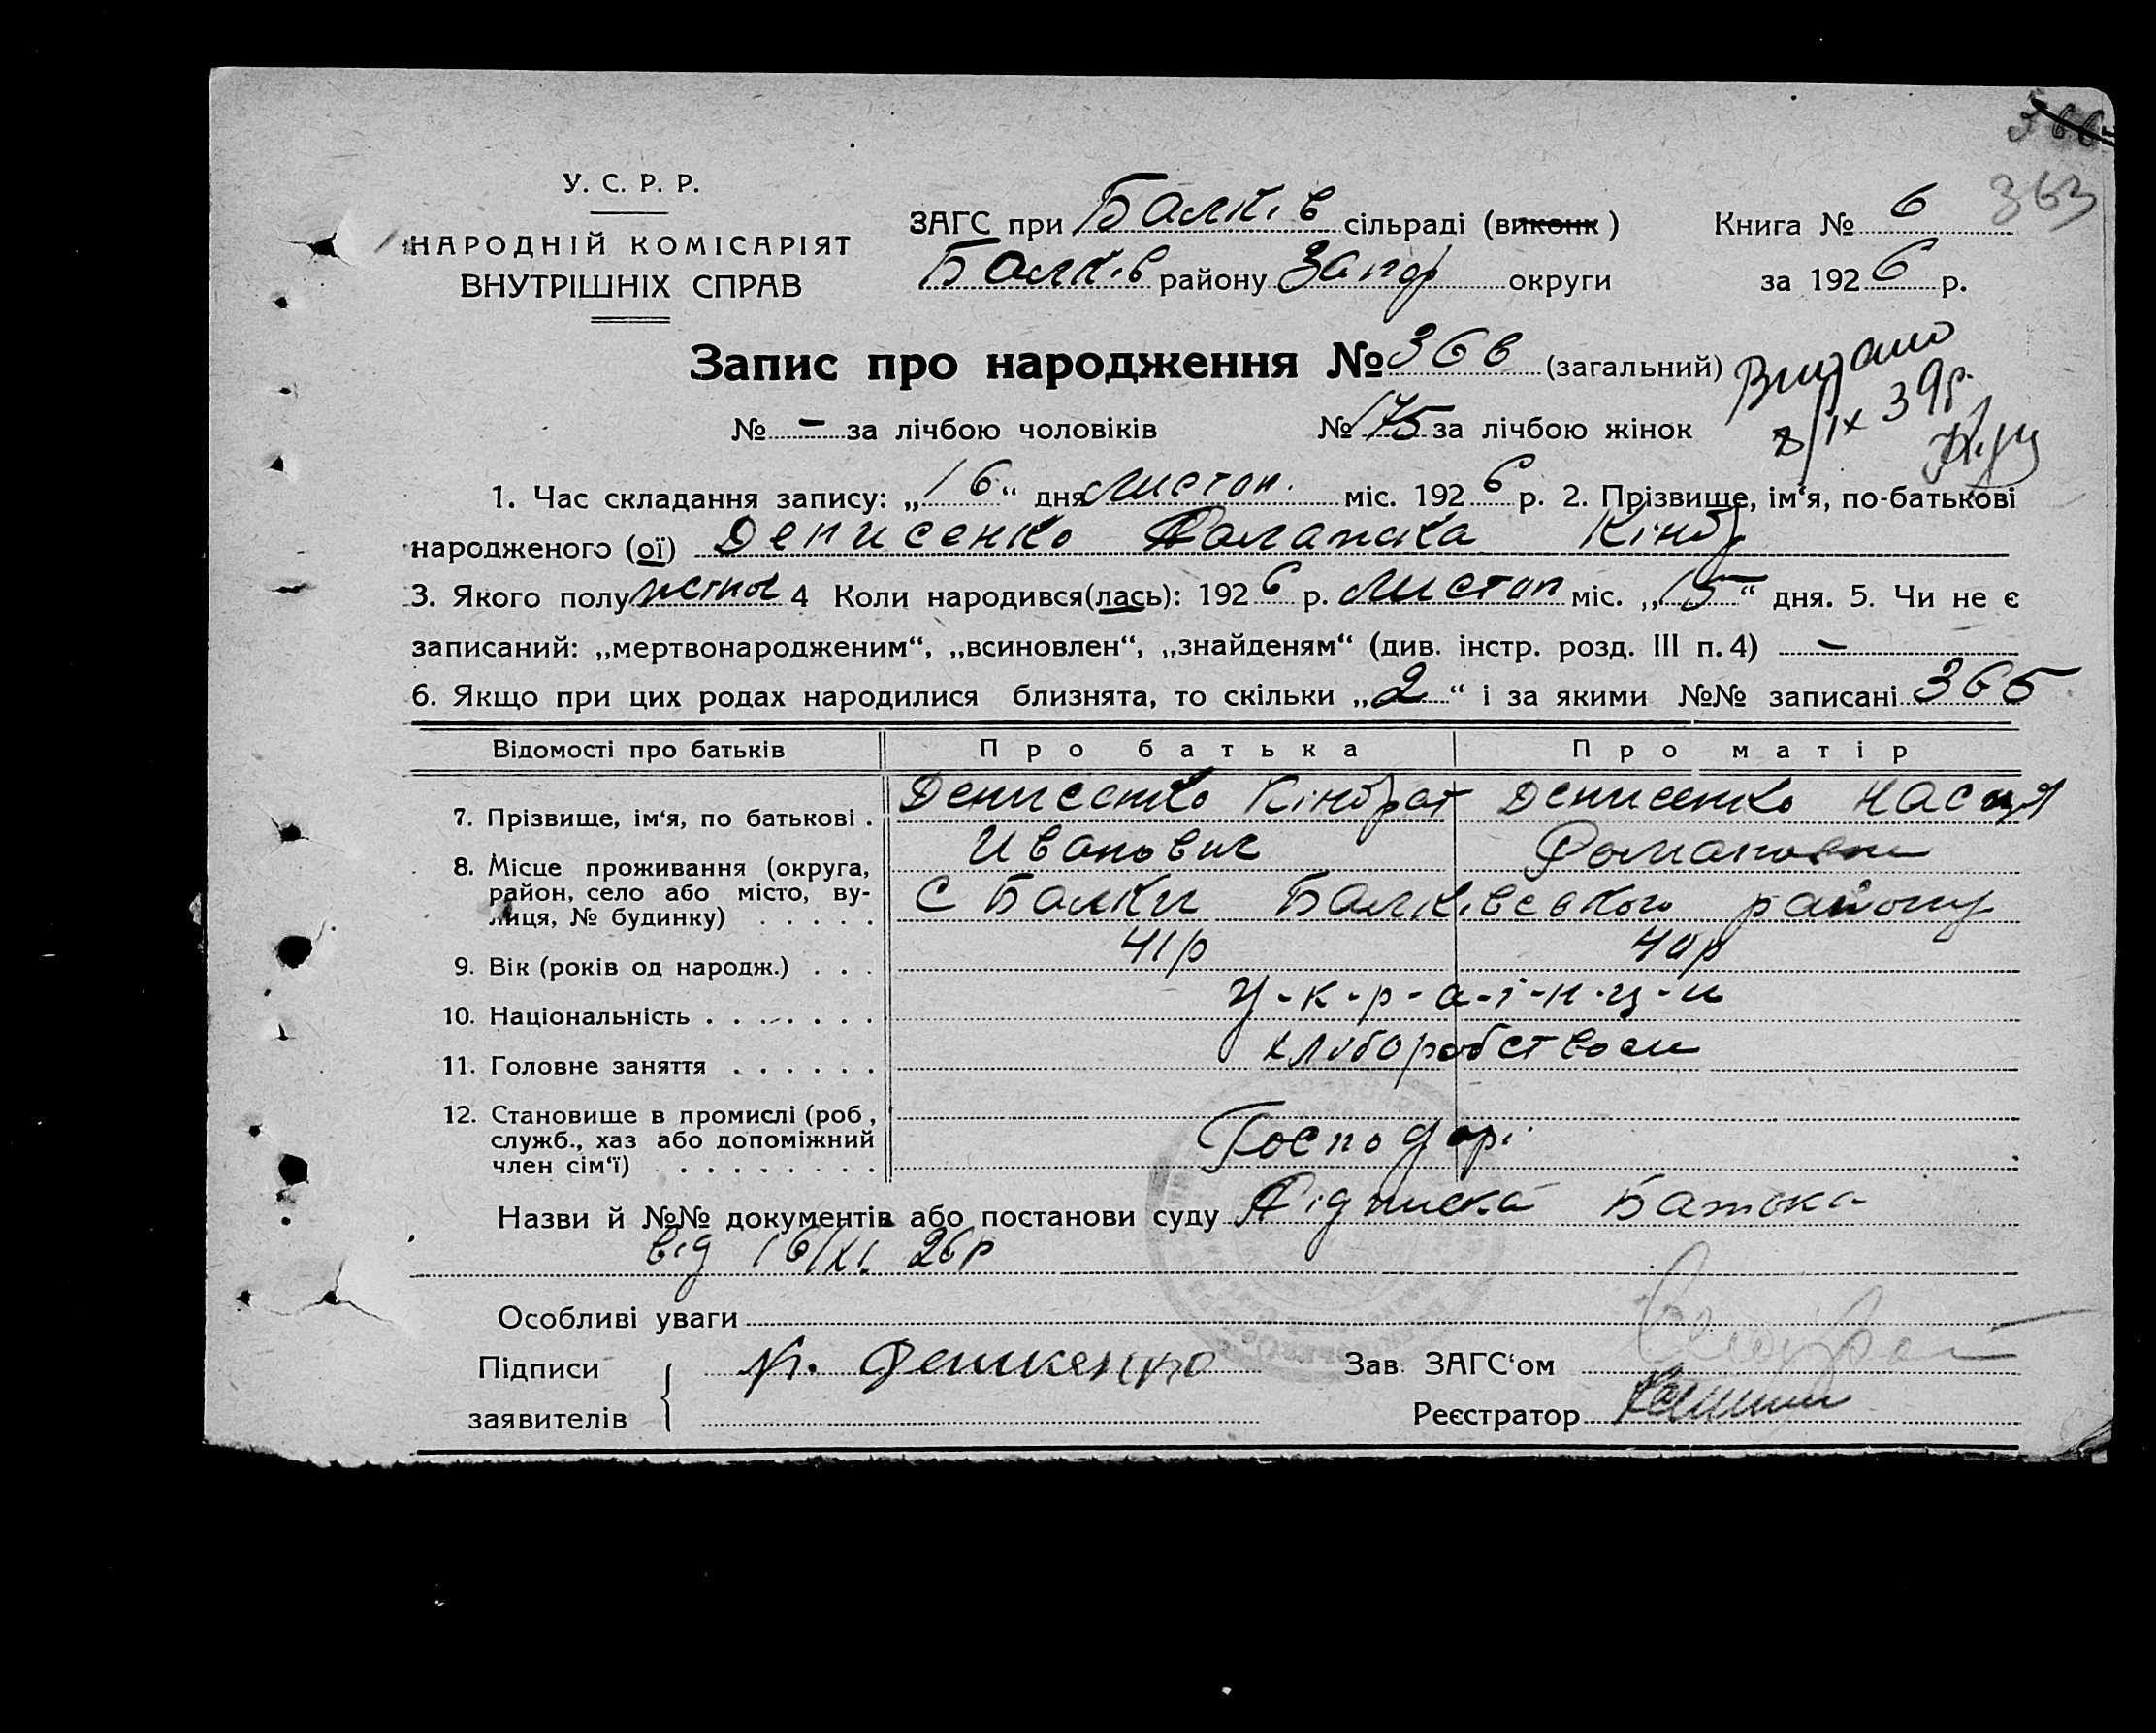 566
363
У. С. Р. Р.
НАРОДНІЙ КОМІСАРІЯТ
ВНУТРІШНІХ СПРАВ
ЗАГС при Балків сільраді (виконк )
Балків району Запор округи
Книга № 6
за 1926 р.
Запис про народження № 366 (загальний)
Видано
8/ІХ 39р.
№ – за лічбою чоловіків № 175 за лічбою жінок
1. Час складання запису: „16“ дня листоп. міс. 1926 р. 2. Прізвище, ім‘я, по-батькові
народженого (ої) Денисенко Палажка Кінд
3. Якого полу жіночі 4 Коли народився(лась): 1926 р. листоп міс. „15“ дня. 5. Чи не є
записаний: „мертвонародженим“, „всиновлен“, „знайденям“ (див. інстр. розд. III п. 4) –
6. Якщо при цих родах народилися близнята, то скільки „2“ і за якими №№ записані 365
Відомості про батьків Про батька Про матір
7. Прізвище, ім‘я, по батькові . Денисенко Кіндрат Денисенко Настя
Иванович Романовна
8. Місце проживання (округа,
район, село або місто, ву-
лиця, № будинку) . . . . . С Балки Балківського району
9. Вік (років од народж.) . . . 41р 40р
10. Національність . . . . . . . У-к-р-а-ї-н-ц-и
11. Головне заняття . . . . . . хліборобством
12. Становище в промислі (роб ,
служб., хаз або допоміжний
член сім‘ї) . . . . . . . . . Господарі
Назви й №№ документів або постанови суду Підписка Батька
від 16/XI. 26р
Особливі уваги
Підписи
заявителів
Зав. ЗАГС‘ом
Реєстратор